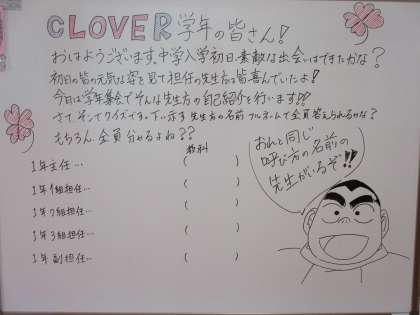 CLOVER学年の皆さん!
おはようございます。中学入学初日、素敵な出会いはできたかな?
初日の皆の元気な姿を見て担任の先生方は皆喜んでいたよ!
今日は学年集会でそんな先生方の自己紹介を行います!!
さて、そこでクイズです。下に示す先生方の名前フルネームで全員答えられるかな?
もちろん、全員分かるよね??
教科
1年主任… ( )
1年1組担任… ( )
1年2組担任… ( )
1年3組担任… ( )
1年副担任… ( )
おれと同じ
呼び方の名前の
先生がいるぞ!!